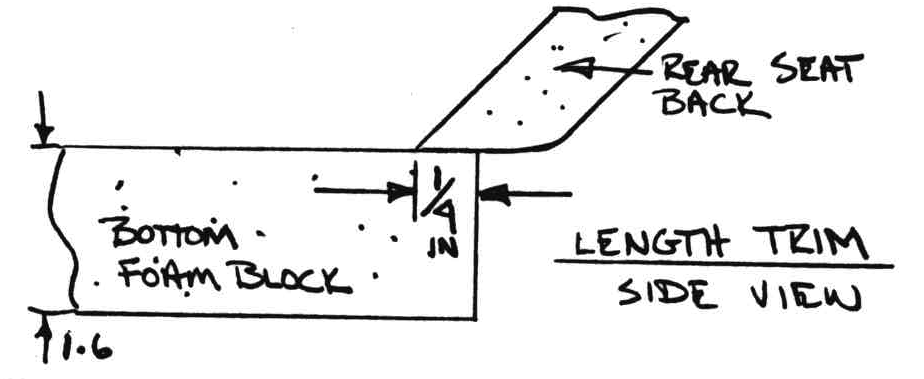 REAR SEAT
BACK
1/4
IN
BOTTOM
FOAM BLOCK
LENGTH TRIM
SIDE VIEW
1.6